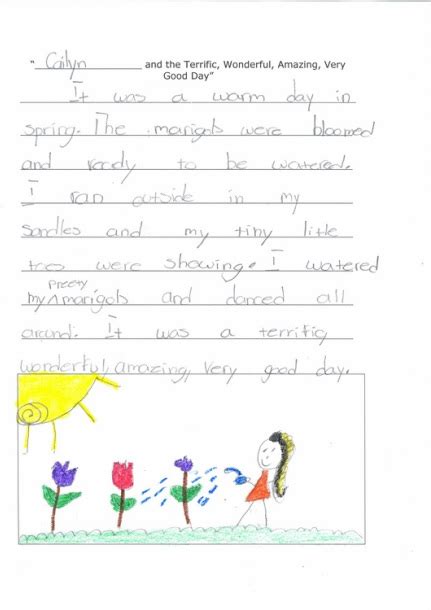 " Cailyn and the Terrific, Wonderful, Amazing, Very
Good Day"
It was a warm day in
spring. The marigols were bloomed
and ready to be watered.
I ran outside in my
sandles and my tiny little
toes were showing. I watered
preety
my ^ marigols and danced all
around. It was a terrific,
wonderful, amazing, very good day.